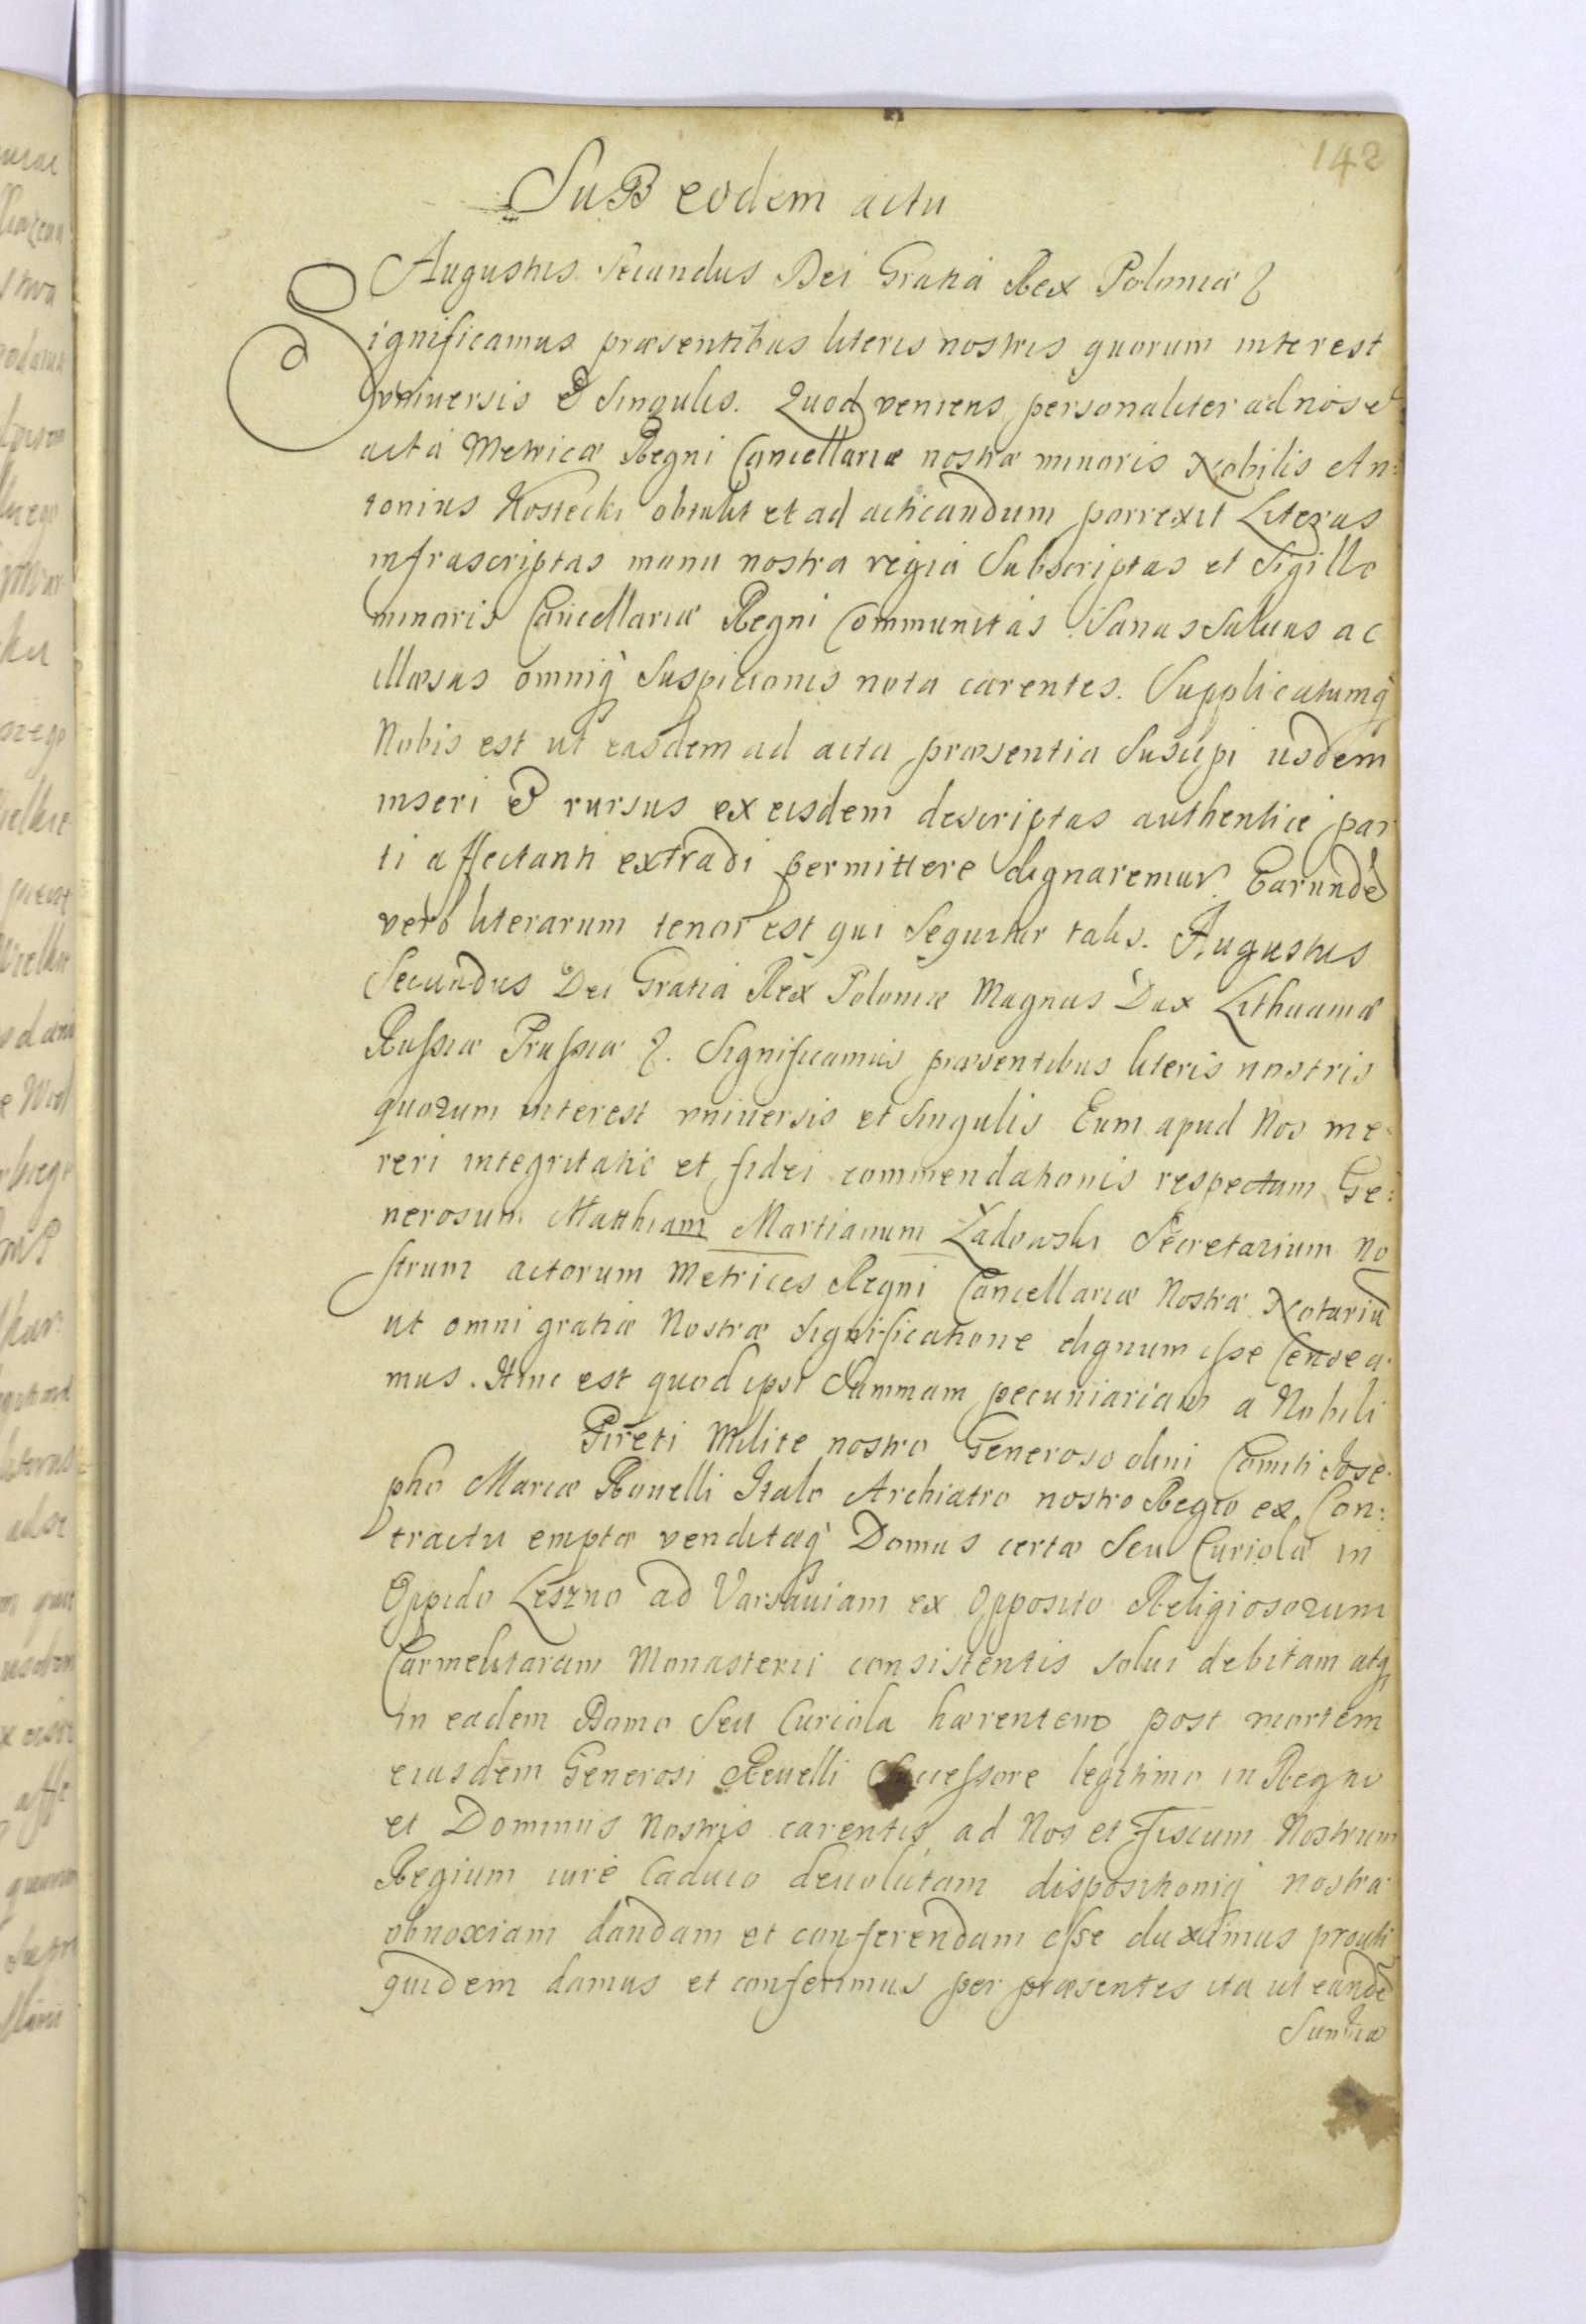 142
SuB eodem actu
Augustus Secundus Dei Gratiâ Rex Poloniæ &
Significamus præsentibus literis nostris quorum interest
vniuersis & Singulis. Quod veniens personaliter ad nos et
acta Metricæ Regni Cancellariæ nostræ minoris Nobilis An:
tonius Kostecki obtulit et ad acticandum porrexit Literas
infrascriptas manu nostra regiâ Subscriptas et Sigillo
minoris Cancellariæ Regni Communitas Sanas Saluas ac
illæsas omniq̀ Suspicionis nota carentes. Supplicatumq̀
Nobis est ut easdem ad acta præsentia Suscipi iisdem
inseri & rursus ex eisdem descriptas authenticè par
ti affectanti extradi permittere dignaremur. Earundẽ
verò literarum tenor est qui Sequitur talis. Augustus
Secundus Dei Gratiâ Rex Poloniæ Magnus Dux Lithuaniæ
Russiæ Prussiæ &. Significamus præsentibus literis nostris
quorum interest vniuersis et Singulis Eum apud Nos me
reri integritatis et fidei commendationis respectum Ge:
nerosum Matthiam Martianum Ładowski Secretarium no
strum actorum Metrices Regni Cancellariæ Nostræ Notariũ
ut omni gratiæ Nostræ Significatione dignum esse Censea:
mus. Hinc est quod ipsi Summam pecuniariam a Nobili
Pireti Milite nostro Generoso olim Comiti Jose:
pho Mariæ Reuelli Italo Archiatro nostro Regio ex Con:
tractu emptæ venditæq̀ Domus certæ Seu Curiolæ in
Oppido Leszno ad Varsauiam ex Opposito Religiosorum
Carmelitarum Monasterii consistentis solui debitam atq̀
in eadem Domo Seu Curiola hærentem post mortem
eiusdem Generosi Reuelli Successore legitimo in Regno
et Dominiis Nostris carentis ad Nos et Fiscum Nostrum
Regium iurè Caduco deuolutam dispositioniq̀ nostræ
obnoxiam dandam et conferendam esse duximus prouti
quidem damus et conferimus per præsentes ita ut eandẽ